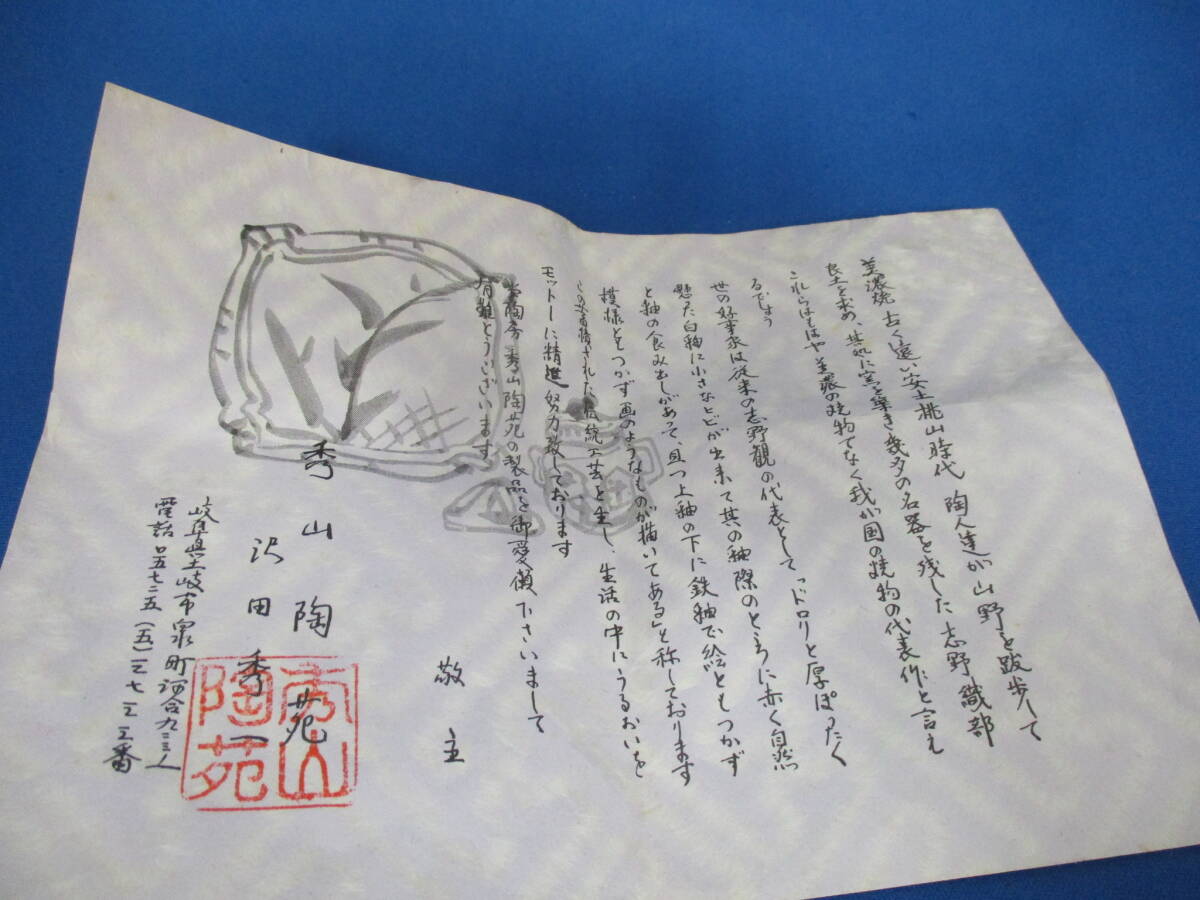 美濃焼 古く遠い安土桃山時代 陶人達が山野を跋歩して
良土を求め、其処に窯を築き幾多の名器を残した志野織部
これらはもはや美濃の焼物でなく我が国の焼物の代表作と言え
るでしょう
世の好事家は従来の志野観の代表として「ドロリと厚ぽったく
懸た白釉に小さなヒビが出来て其の釉際のところに赤く自然
と釉の食み出しがあって、且つ上釉の下に鉄釉で絵ともつかず
模様ともつかず画のようなものが描いてある」と称しております
この必有情された伝統工芸を生し、生活の中にうるおいを
モットーに精進努力致しております
当陶房秀山陶苑の製品を御愛顧下さいまして
有難とうございます
敬主
秀山陶苑
沢田秀一
岐阜県土岐市泉町河合九二三ノ
電話〇五七二五(五)三七三三番
秀山
陶苑